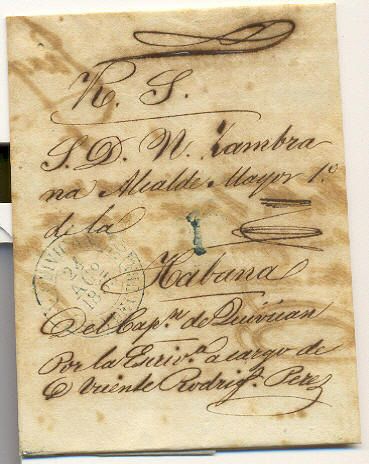 R. S.
S. D. N. Zambra
na Alcalde Mayor 1.º
de la
1
Habana
Del Cap.n de Quivican
Por la Escriv.a a cargo de
D Vicente Rodrig.z Perez